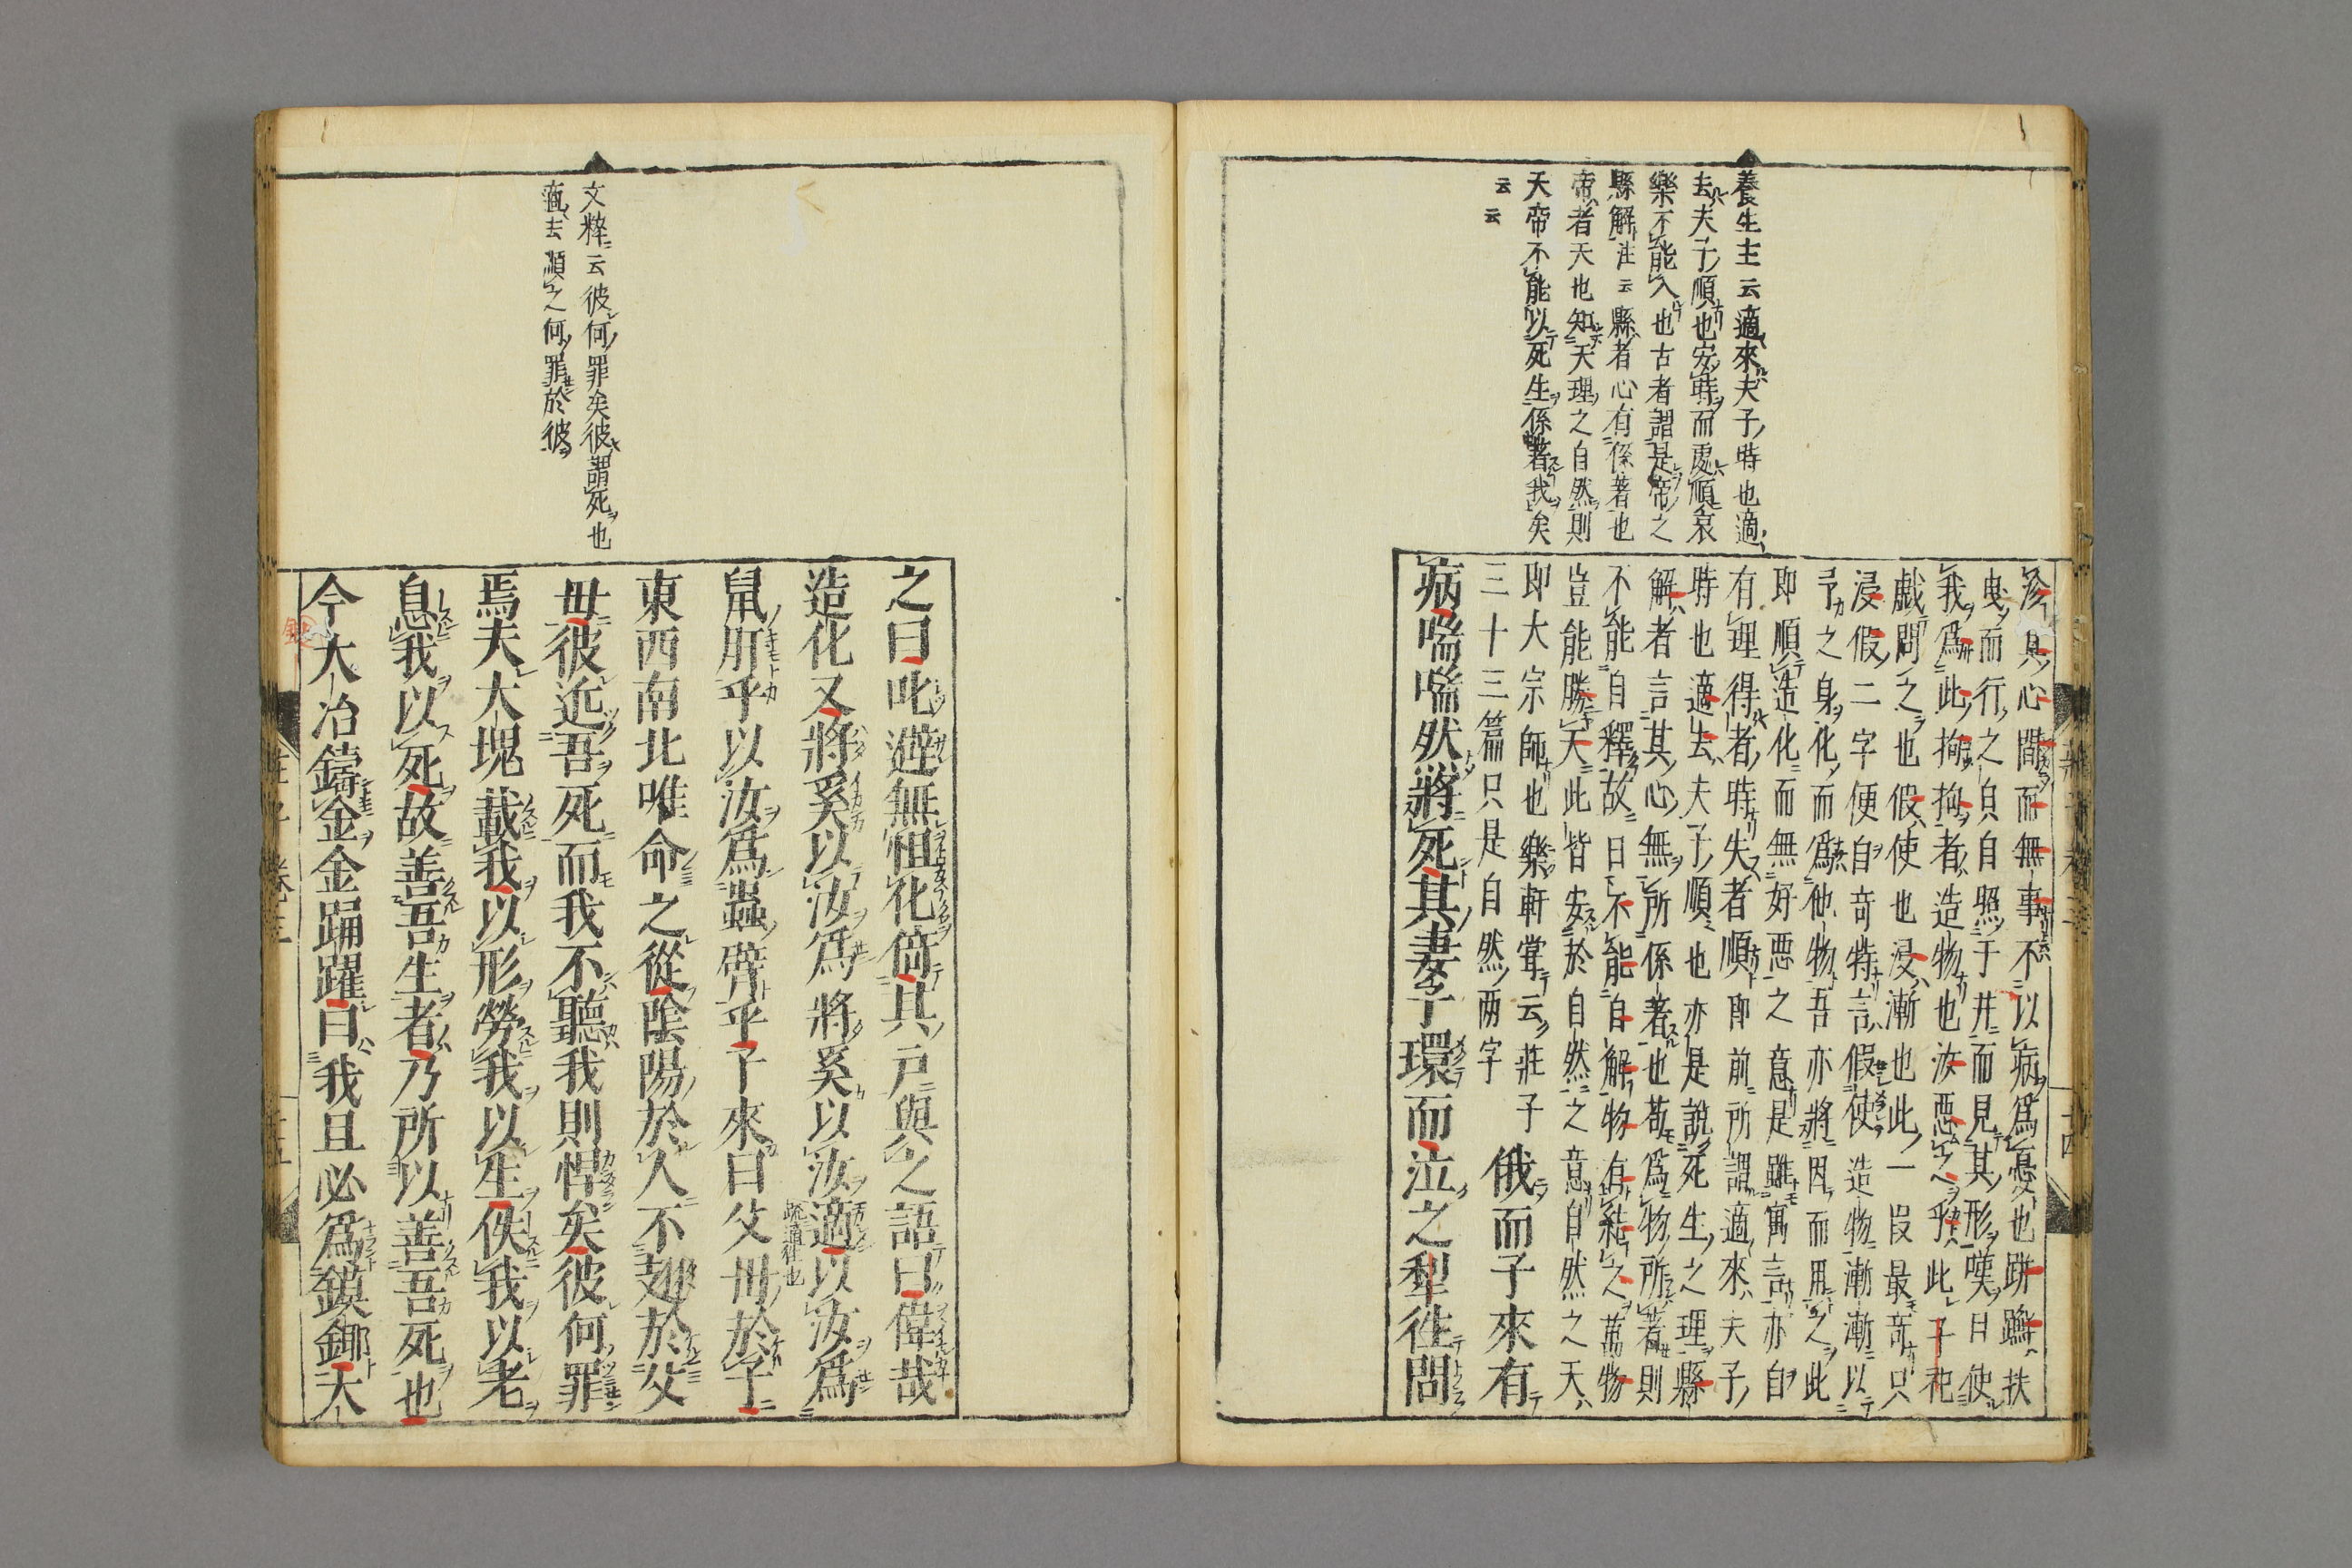 養生主云適來夫子時也適
去夫子順也安時而處順哀
樂不能入也古者謂是帝之
縣解注云縣者心有係著也
帝者天也知天理之自然則
天帝不能以死生係著我矣
云云
沴其心閒而無事不以病爲憂也跰𨇤扶
曳而行之皃自照于井而見其形嘆曰使
我爲此拘拘者造物也汝惡之乎此子祀
戲問之也假使也浸漸也此一段最奇只
浸假二字便自奇特言假使造物漸漸以
予之身化而爲他物吾亦將因而用之此
即順造化而無好惡之意是雖寓言亦自
有理得者時失者順即前所謂適來夫子
時也適去夫子順也亦是說死生之理縣
解者言其心無所係著也苟爲物所著則
不能自釋故曰不能自解物有結之萬物
豈能勝天此皆安於自然之意自然之天
即大宗師也樂軒嘗云莊子
三十三篇只是自然兩字
俄而子來有
病喘喘然將死其妻子環而泣之犂往問
文粹云彼何罪矣彼謂死也
適去順之何罪於彼
之曰叱避無怛化倚其戸與之語曰偉哉
造化又將奚以汝爲將奚以汝適以汝爲
疏適往也
鼠肝乎以汝爲蟲臂乎子來曰父母於子
東西南北唯命之從陰陽於人不翅於父
母彼近吾死而我不聽我則悍矣彼何罪
焉夫大塊載我以形勞我以生佚我以老
息我以死故善吾生者乃所以善吾死也
今大冶鑄金金踊躍曰我且必爲鏌鋣大